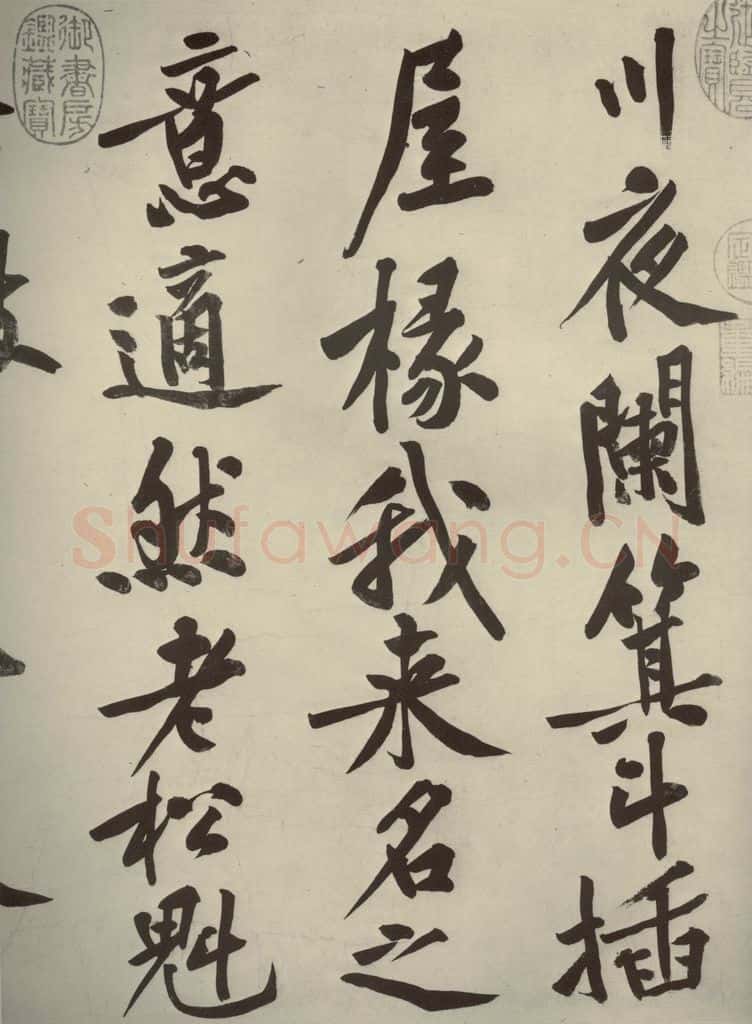 川夜闌箕斗插
屋椽我来名之
意適然老松魁
御書房鑑藏寶
Shufawang.CN